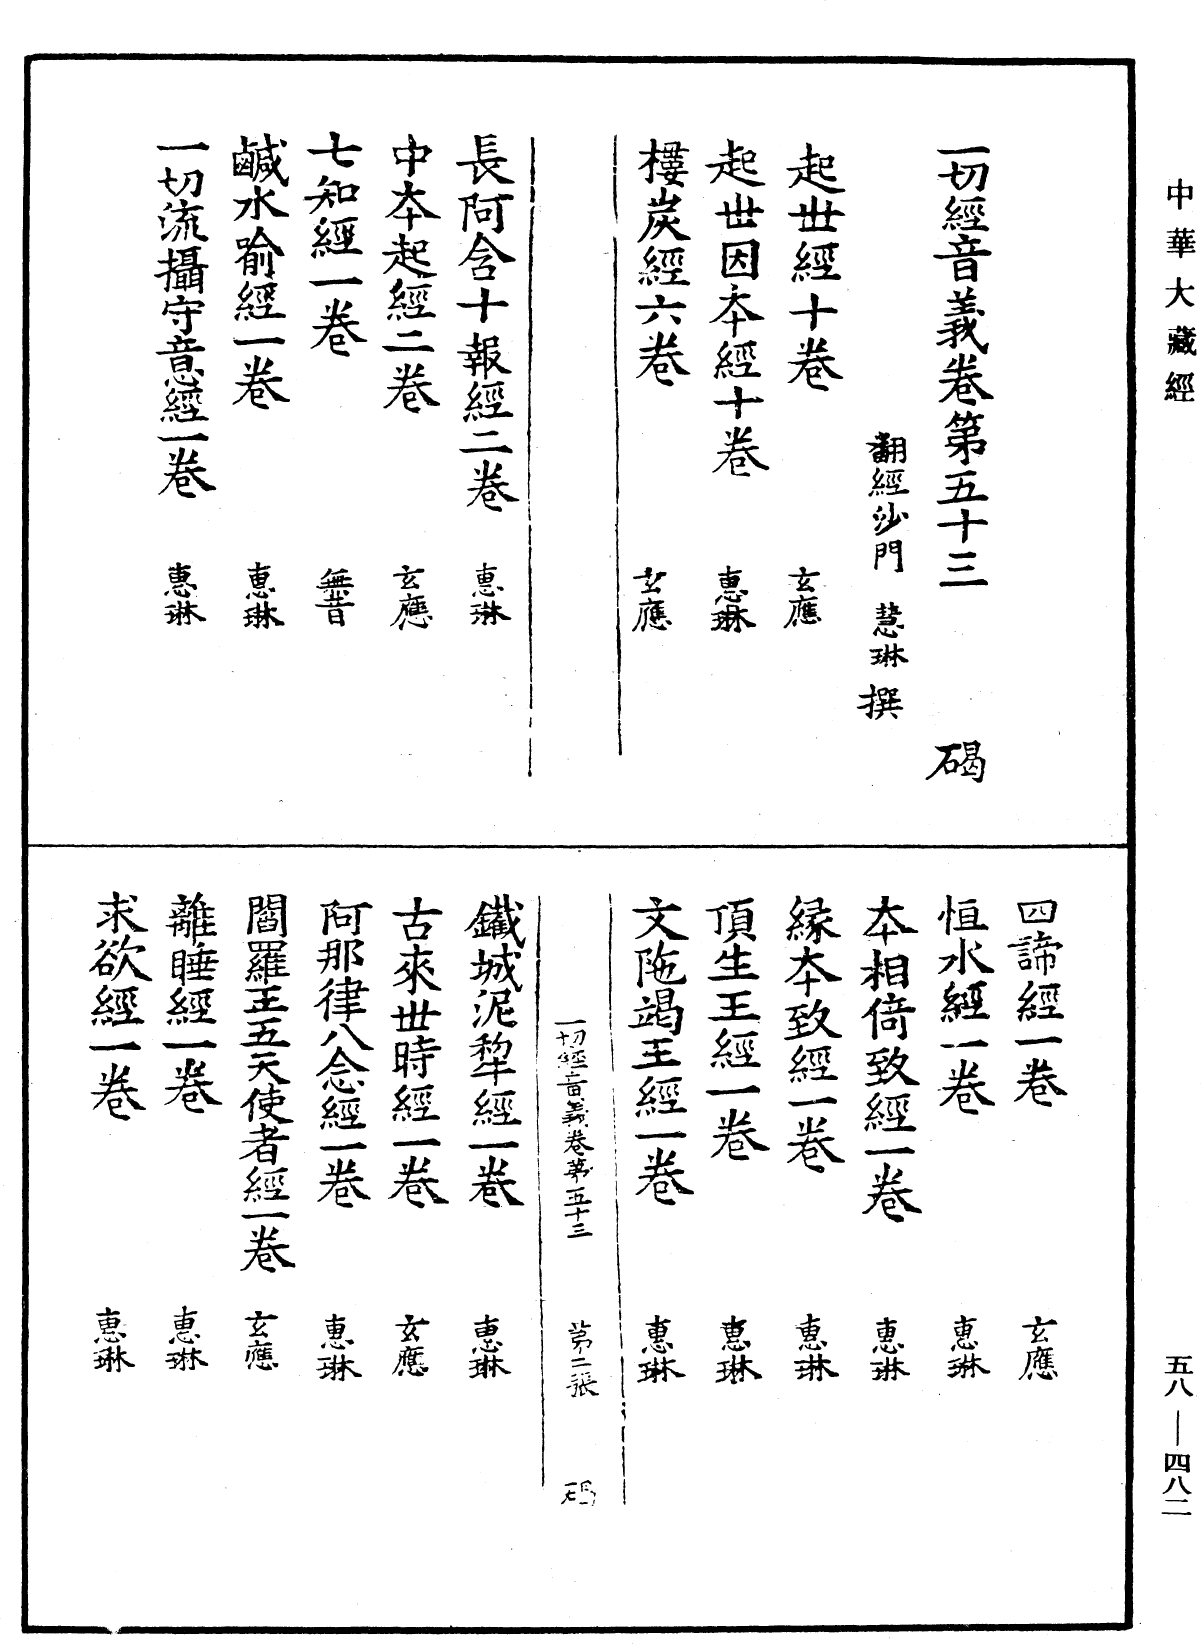 中華大藏經
一切經音義卷第五十三　碣
翻經沙門　慧琳　撰
起世經十卷　玄應
起世因本經十卷　惠琳
樓炭經六卷　玄應
長阿含十報經二卷　惠琳
中本起經二卷　玄應
七知經一卷　無音
鹹水喻經一卷　惠琳
一切流攝守意經一卷　惠琳
四諦經一卷　玄應
恒水經一卷　惠琳
本相倚致經一卷　惠琳
緣本致經一卷　惠琳
頂生王經一卷　惠琳
文陁竭王經一卷　惠琳
一切經音義卷第五十三　第二張　碣
鐵城泥犂經一卷　惠琳
古來世時經一卷　玄應
阿那律八念經一卷　惠琳
閻羅王五天使者經一卷　玄應
離睡經一卷　惠琳
求欲經一卷　惠琳
五八—四八二